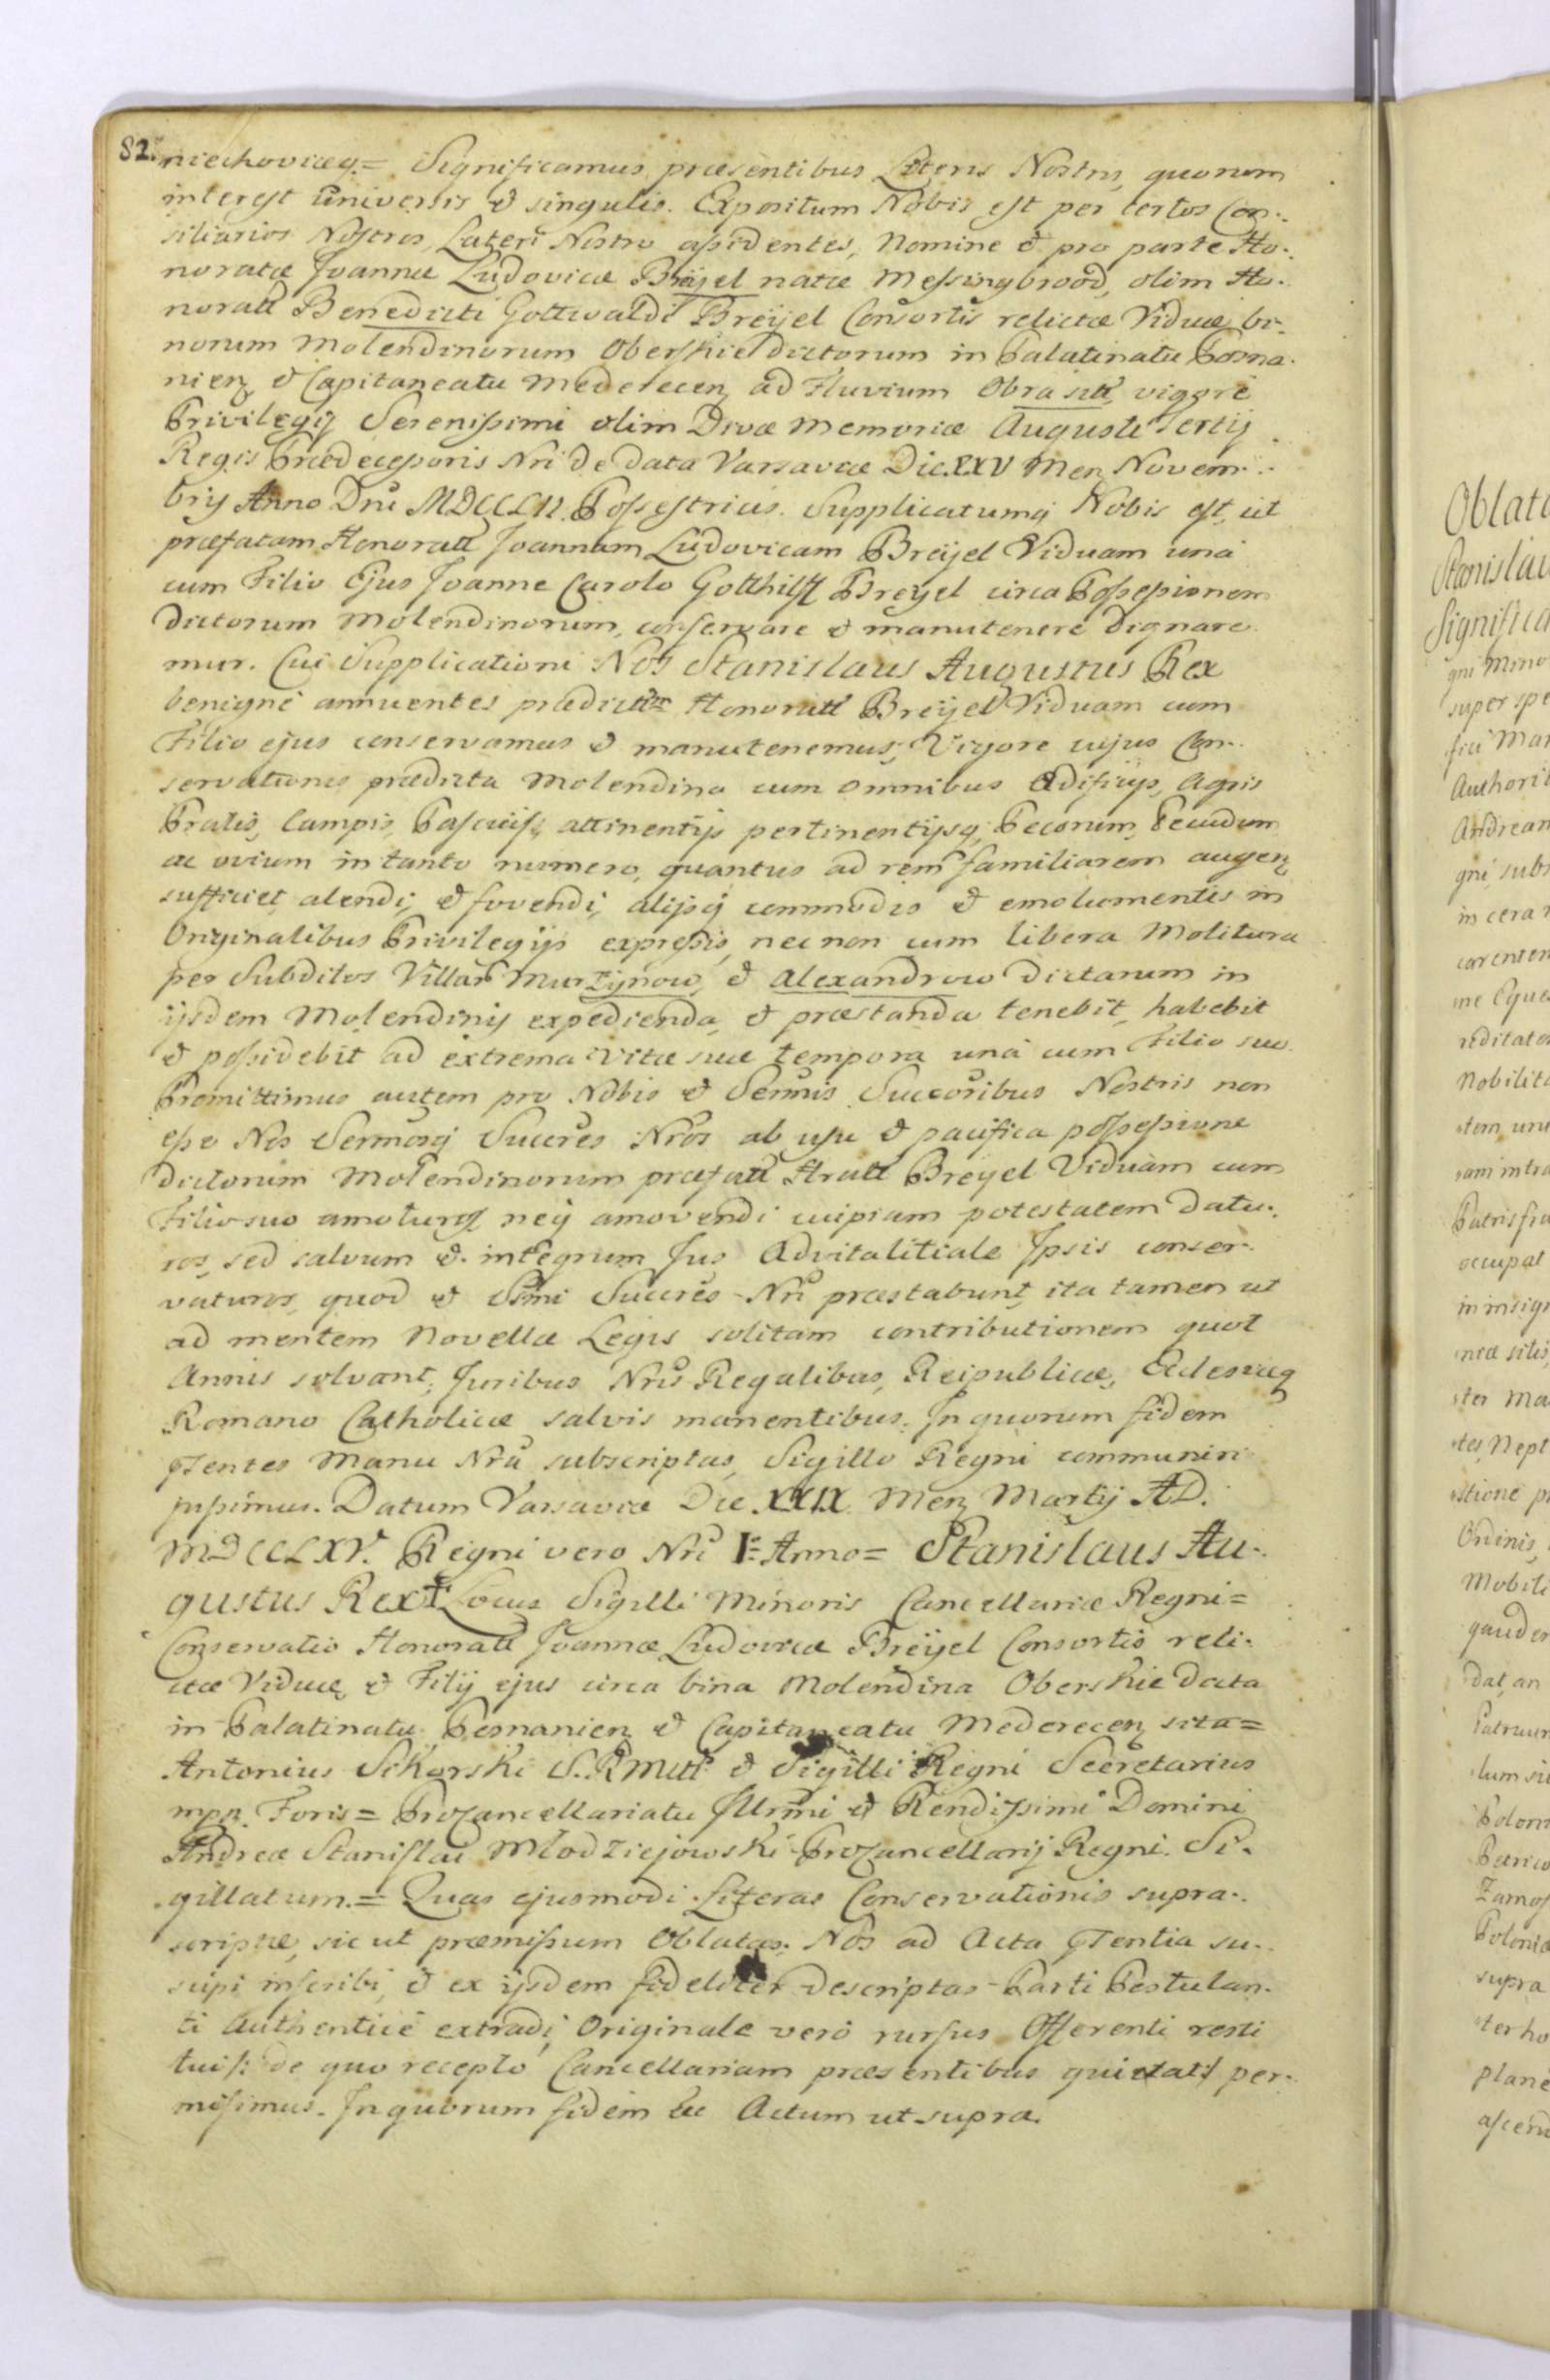 82.
niechoviæq.= Significamus præsentibus Literis Nostris, quorum
interest universis & singulis. Expositum Nobis est per certos Con-
siliarios Nostros, Lateri Nostro assidentes, Nomine & pro parte Ho-
noratæ Joannæ Ludovicæ Breÿel natæ Messingbrood, olim Ho-
norati Benedicti Gottwaldi Breÿel Consortis relictæ Viduæ, bi-
norum Molendinorum Oberskie dictorum in Palatinatu Posna-
nien & Capitaneatu Mederecen ad Fluvium Obra sit vigore
Privilegij Serenissimi olim Divæ Memoriæ Augusti Tertij
Regis Prædecessoris Nri de data Varsaviæ Die XXV Men Novem-
bris Anno Dni MDCCLII. Possestricis. Supplicatumq Nobis est, ut
præfatam Honorat Joannam Ludovicam Breÿel Viduam unà
cum Filio Ejus Joanne Carolo Gotthilff Breÿel circa Possessionem
dictorum Molendinorum, conservare & manutenere dignare-
mur. Cui Supplicationi Nos Stanislaus Augustus Rex
benignè annuentes prædict Honorat Breÿel Viduam cum
Filio ejus conservamus & manutenemus; Vigore cujus Con-
servationis prædicta Molendina cum omnibus Ædificijs, Agris
Pratis, Campis, Pascuisq attinentijs pertinentijsq, Pecorum, Pecudum
ac ovium in tanto numero, quantus ad rem familiarem augen
sufficiet, alendi, & fovendi, alijsq commodis & emolumentis in
Originalibus Privilegijs expressis, nec non cum libera Molitura
per Subditos Villar Murzÿnow, & Alexandrow dictarum in
ijsdem Molendinis expedienda, & præstanda tenebit, habebit
& possidebit ad extrema vitæ suæ tempora unà cum Filio suo.
Promittimus autem pro Nobis & Sermis Succoribus Nostris non
esse Nos Sermosq Succres Nros ab usu & pacifica possessione
dictorum Molendinorum præfat Hratt Breÿel Viduam cum
Filio suo amoturos neq amovendi cuipiam potestatem datu-
ros, sed salvum & integrum Jus Advitalitiale Ipsis conser-
vaturos, quod & Sermi Succres Nri præstabunt, ita tamen ut
ad mentem Novellæ Legis solitam contributionem quot
Annis solvant; Juribus Nris Regalibus, Reipublicæ, Ecclesiæq
Romano Catholicæ salvis manentibus. In quorum fidem
pntentes Manu Nra subscriptas, Sigillo Regni communiri
jussimus. Datum Varsaviæ Die XXIX Men Martij A.D.
MDCCLXV. Regni vero Nri I: Anno= Stanislaus Au-
gustus Rex Locus Sigilli Minoris Cancellariæ Regni=
Conservatio Honorat Joannæ Ludovicæ Breÿel Consortis reli-
ctæ Viduæ & Filij ejus circa bina Molendina Oberskie dicta
in Palatinatu Posnanien & Capitaneatu Mederecen sita=
Antonius Sikorski S.R.Mtt & Sigilli Regni Secretarius
mpp. Foris= Procancellariatu Illrmi & Rendissimi Domini
Andreæ Stanislai Młodziejowski Procancellarij Regni. Si-
gillatum.= Quas ejusmodi Literas Conservationis supra-
scriptæ, sic ut præmissum Oblatas. Nos ad Acta pntentia su-
scipi inscribi, & ex ijsdem fideliter descriptas Parti Postulan-
ti Authenticè extradi, Originale verò rursus Offerenti resti
tuiss: de quo recepto Cancellariam præsentibus quietat per-
misimus. In quorum fidem &c Actum ut supra.
Oblata
Stanislau
Significa
gni Mino
super spe
fici Mar
Authorit
Andream
gni, subs
in cera r
carenten
me Eque
reditato
Nobilita
tem, uni
Patris fra
occupat
in insign
Ordinis,
Mobili
gauden
dat, an
Patruum
lum si
Polon
Petrico
Zamos
Polonia
supra
ter ho
plane
ascend